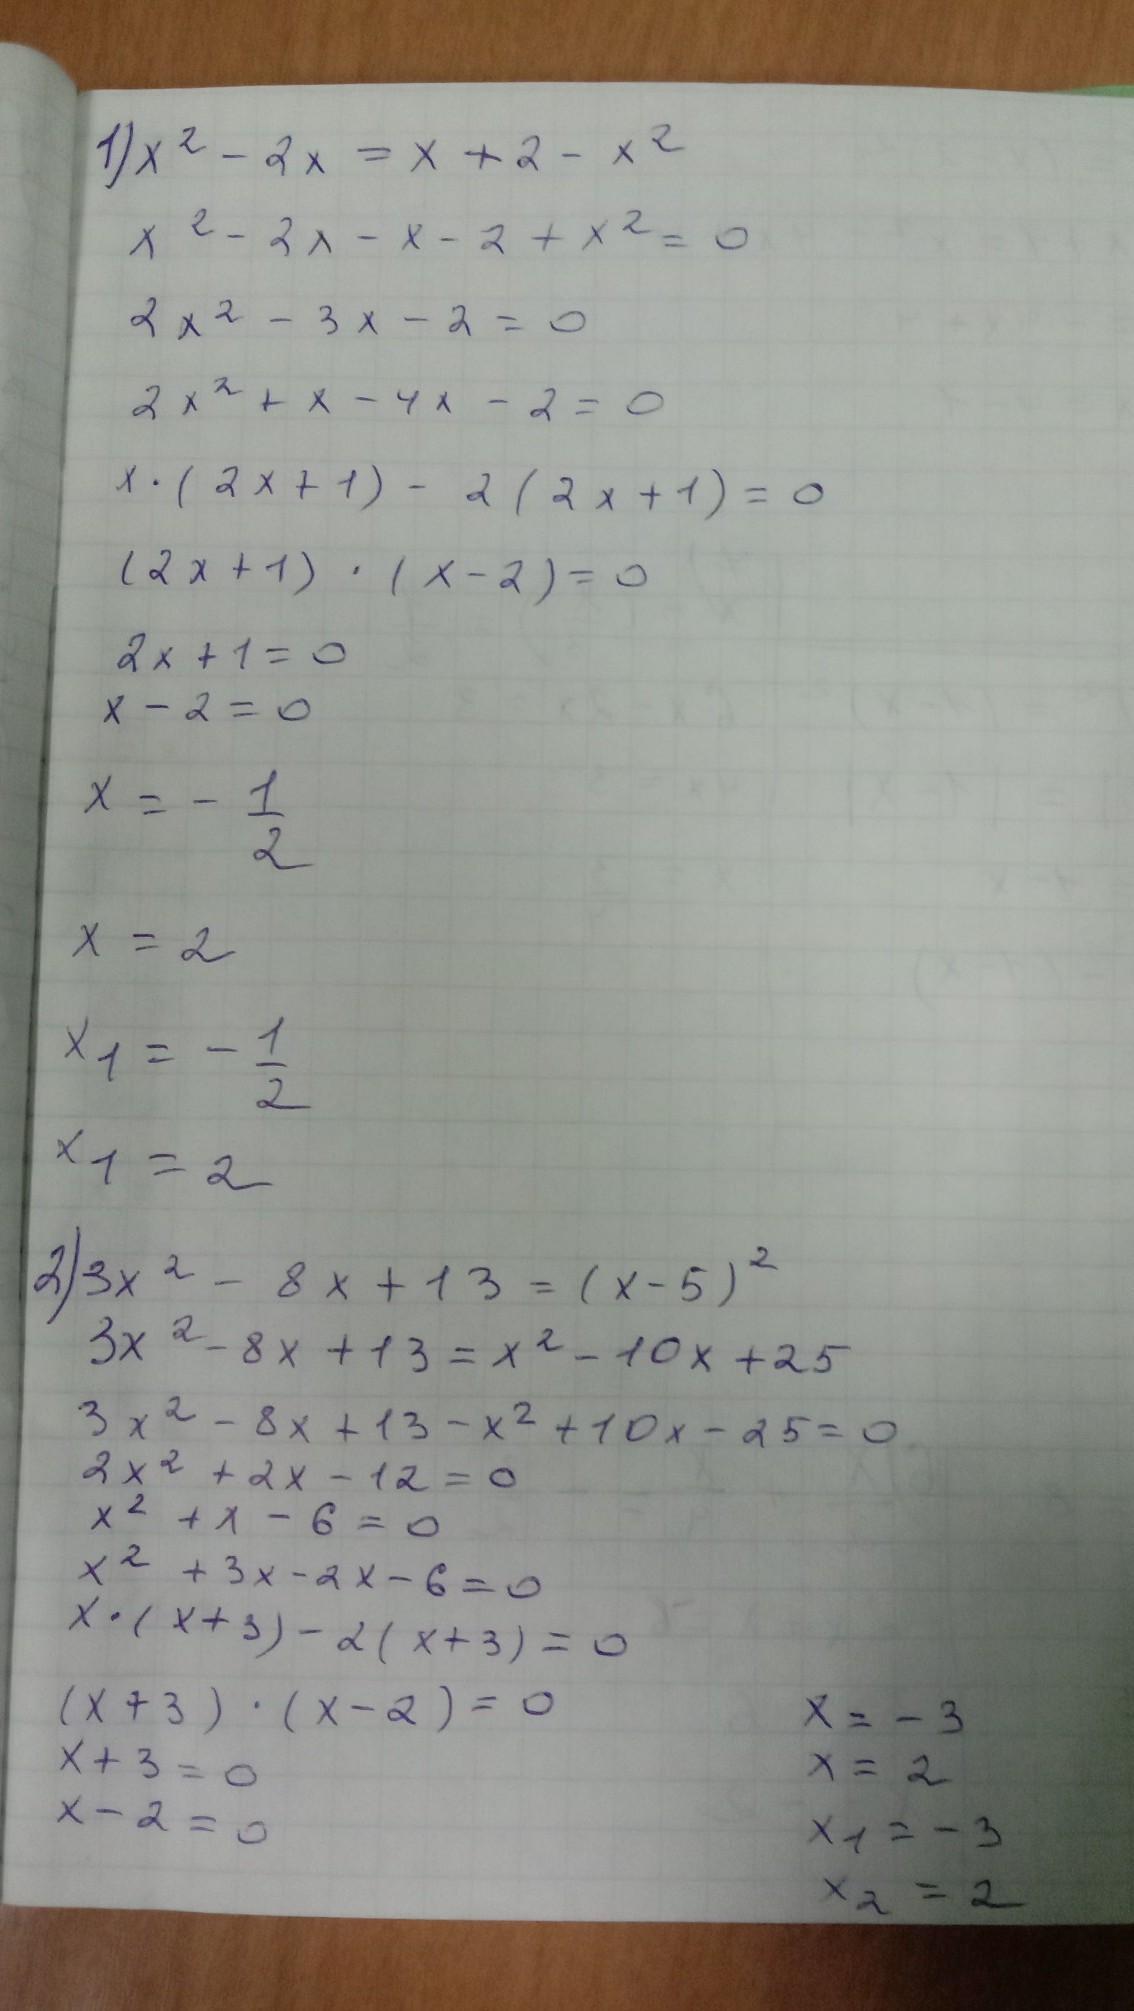 1) x² - 2x = x + 2 - x²
x² - 2x - x - 2 + x² = 0
2x² - 3x - 2 = 0
2x² + x - 4x - 2 = 0
x · (2x + 1) - 2(2x + 1) = 0
(2x + 1) · (x - 2) = 0
2x + 1 = 0
x - 2 = 0
x = - 1/2
x = 2
x₁ = - 1/2
x₁ = 2
2) 3x² - 8x + 13 = (x - 5)²
3x² - 8x + 13 = x² - 10x + 25
3x² - 8x + 13 - x² + 10x - 25 = 0
2x² + 2x - 12 = 0
x² + x - 6 = 0
x² + 3x - 2x - 6 = 0
x · (x + 3) - 2(x + 3) = 0
(x + 3) · (x - 2) = 0
x + 3 = 0
x - 2 = 0
x = - 3
x = 2
x₁ = - 3
x₂ = 2